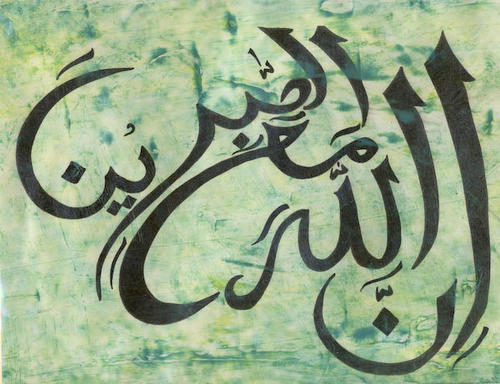 إن الله مع الصبرين